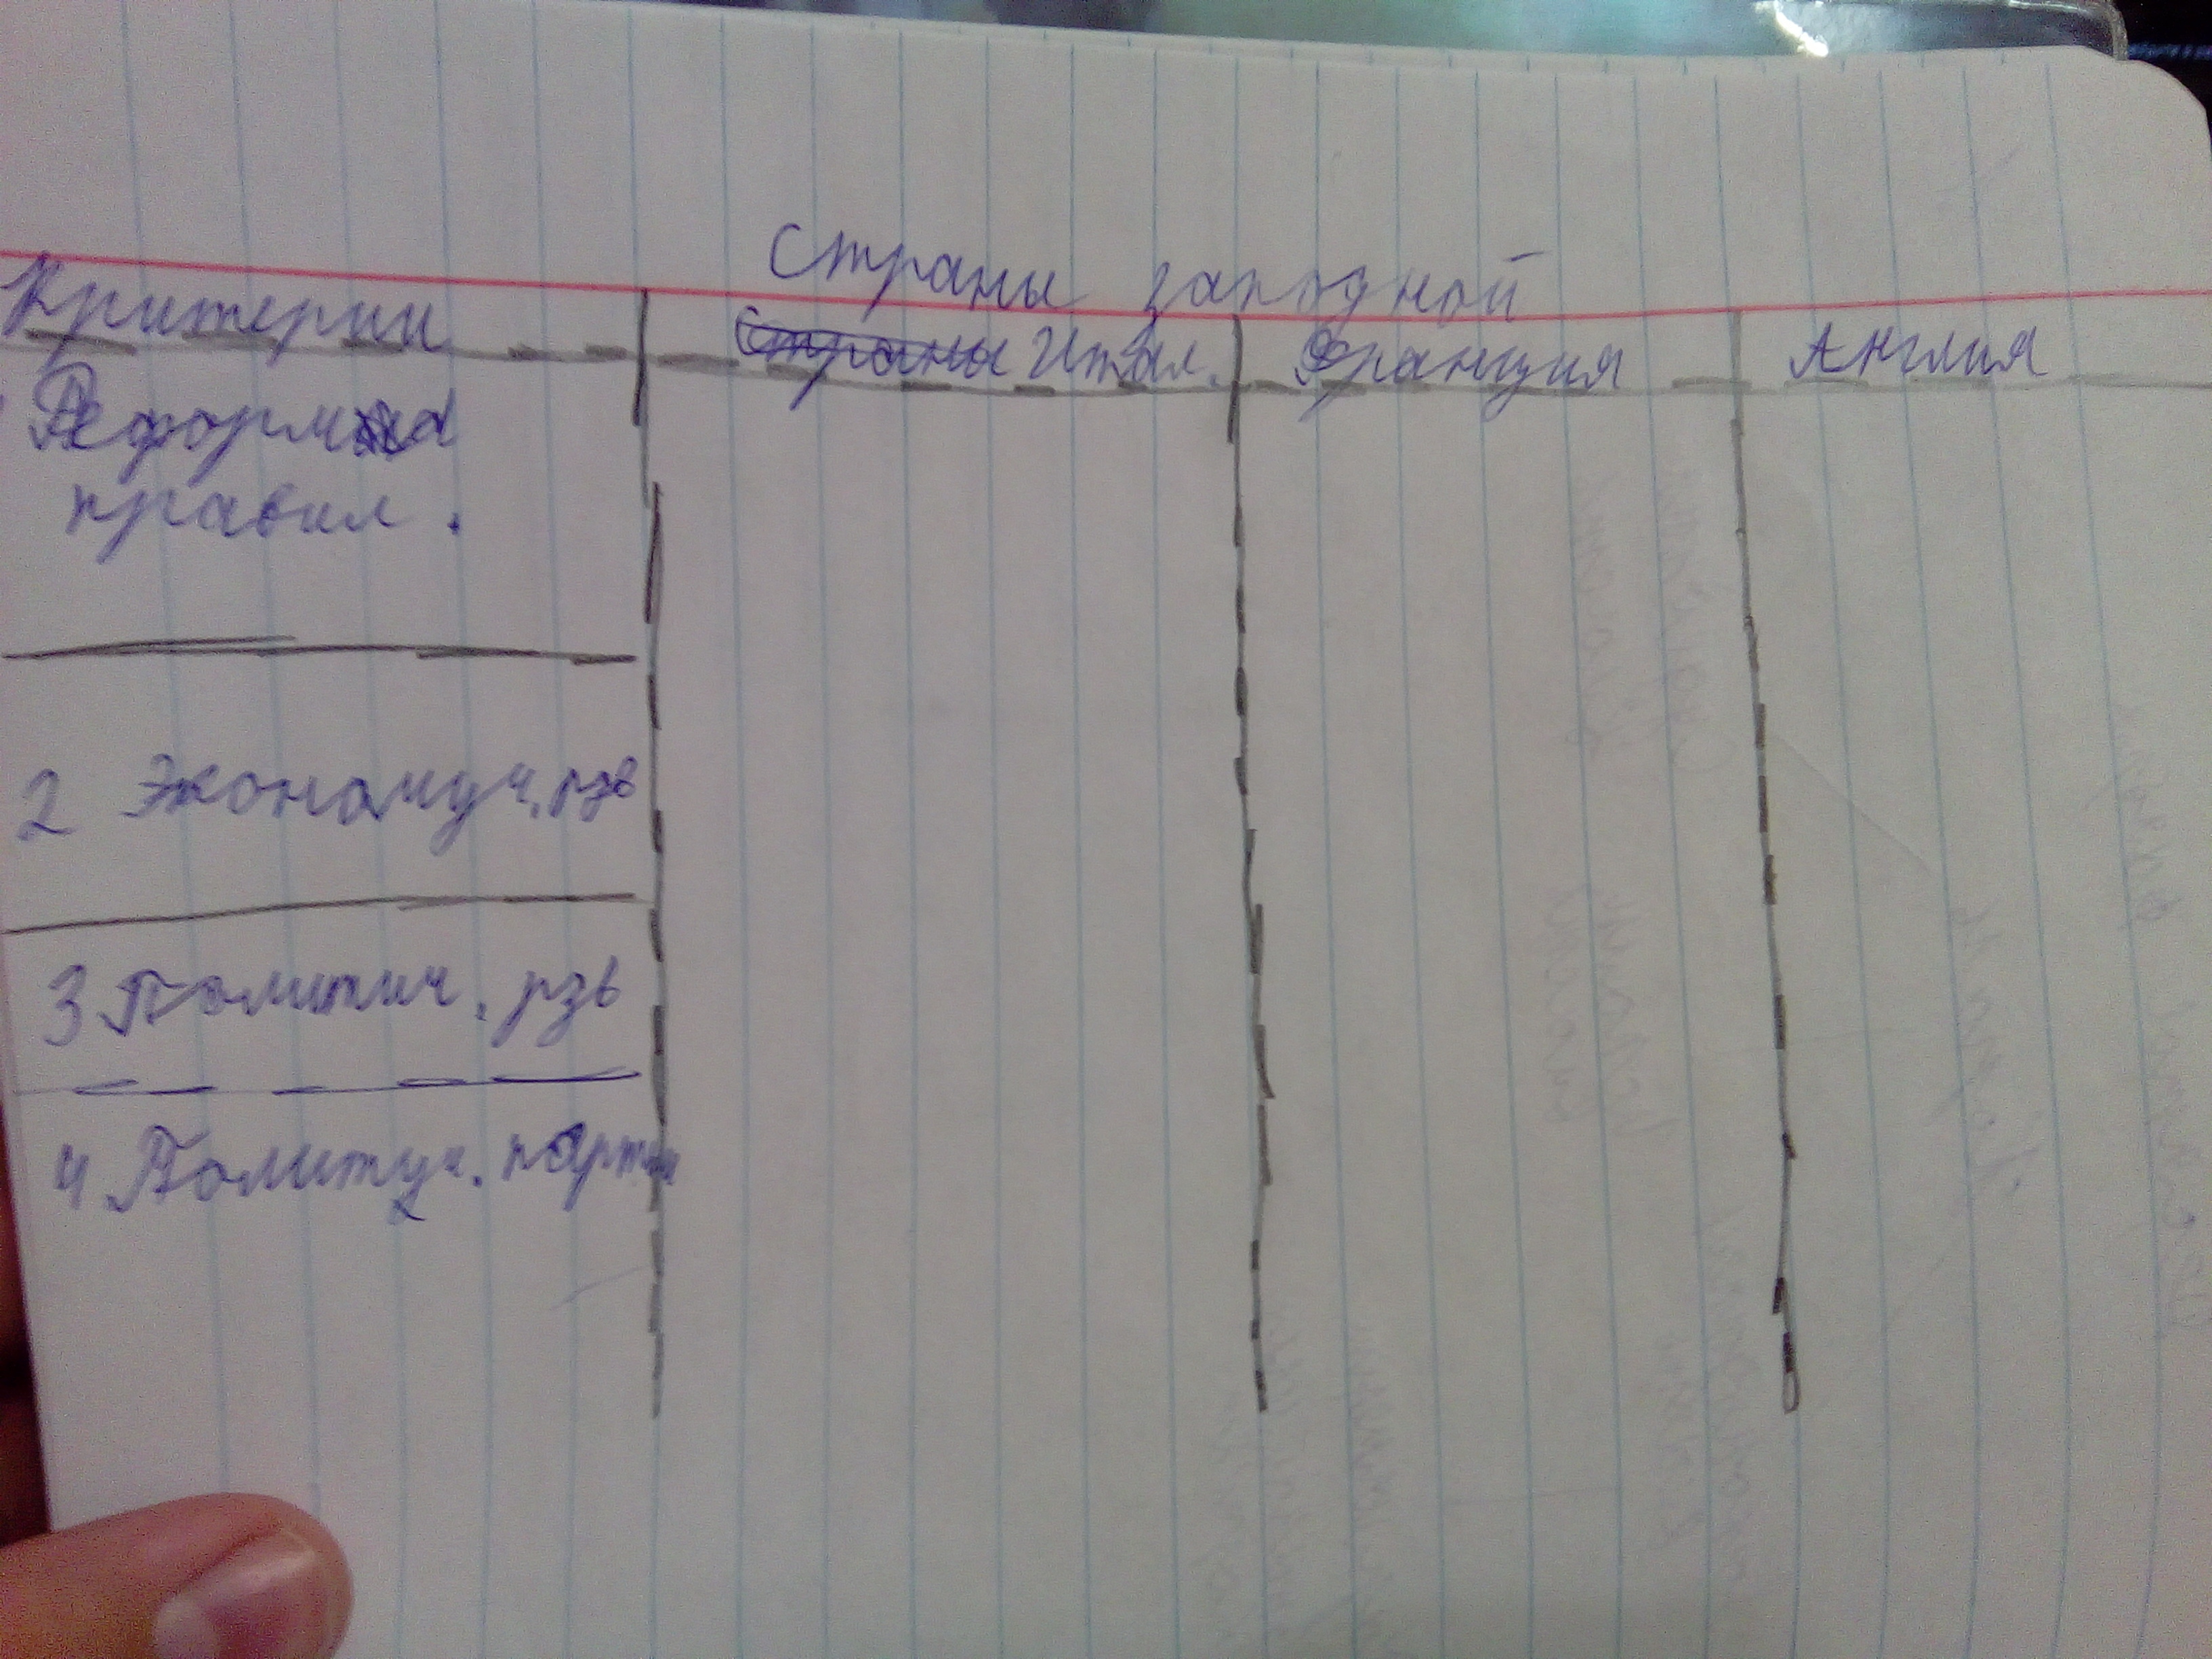 Страны западной
Критерии Итал. Франция Англия
Реформа
правил.
2 Экономич. рзв
3 Политич. рзв
4. Политич. партии